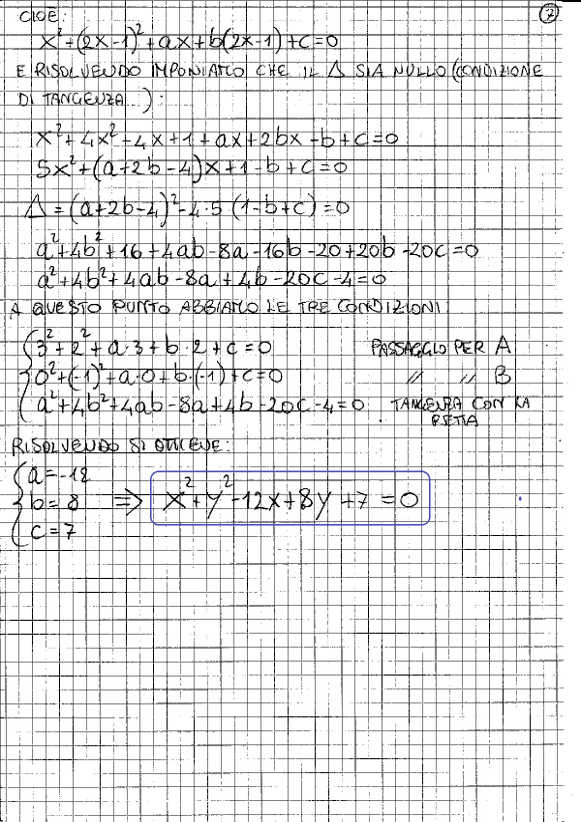 CIOÈ: 2
x²+(2x-1)²+ax+b(2x-1)+c=0
E RISOLVENDO IMPONIAMO CHE IL Δ SIA NULLO (CONDIZIONE
DI TANGENZA...):
x²+4x²-4x+1+ax+2bx-b+c=0
5x²+(a+2b-4)x+1-b+c=0
Δ=(a+2b-4)²-4·5(1-b+c)=0
a²+4b²+16+4ab-8a-16b-20+20b-20c=0
a²+4b²+4ab-8a+4b-20c-4=0
A QUESTO PUNTO ABBIAMO LE TRE CONDIZIONI:
3²+2²+a·3+b·2+c=0 PASSAGGIO PER A
0²+(-1)²+a·0+b·(-1)+c=0 // // B
a²+4b²+4ab-8a+4b-20c-4=0 TANGENZA CON LA
RETTA
RISOLVENDO SI OTTIENE:
a=-12
b=8 ⇒ x²+y²-12x+8y+7=0
c=7